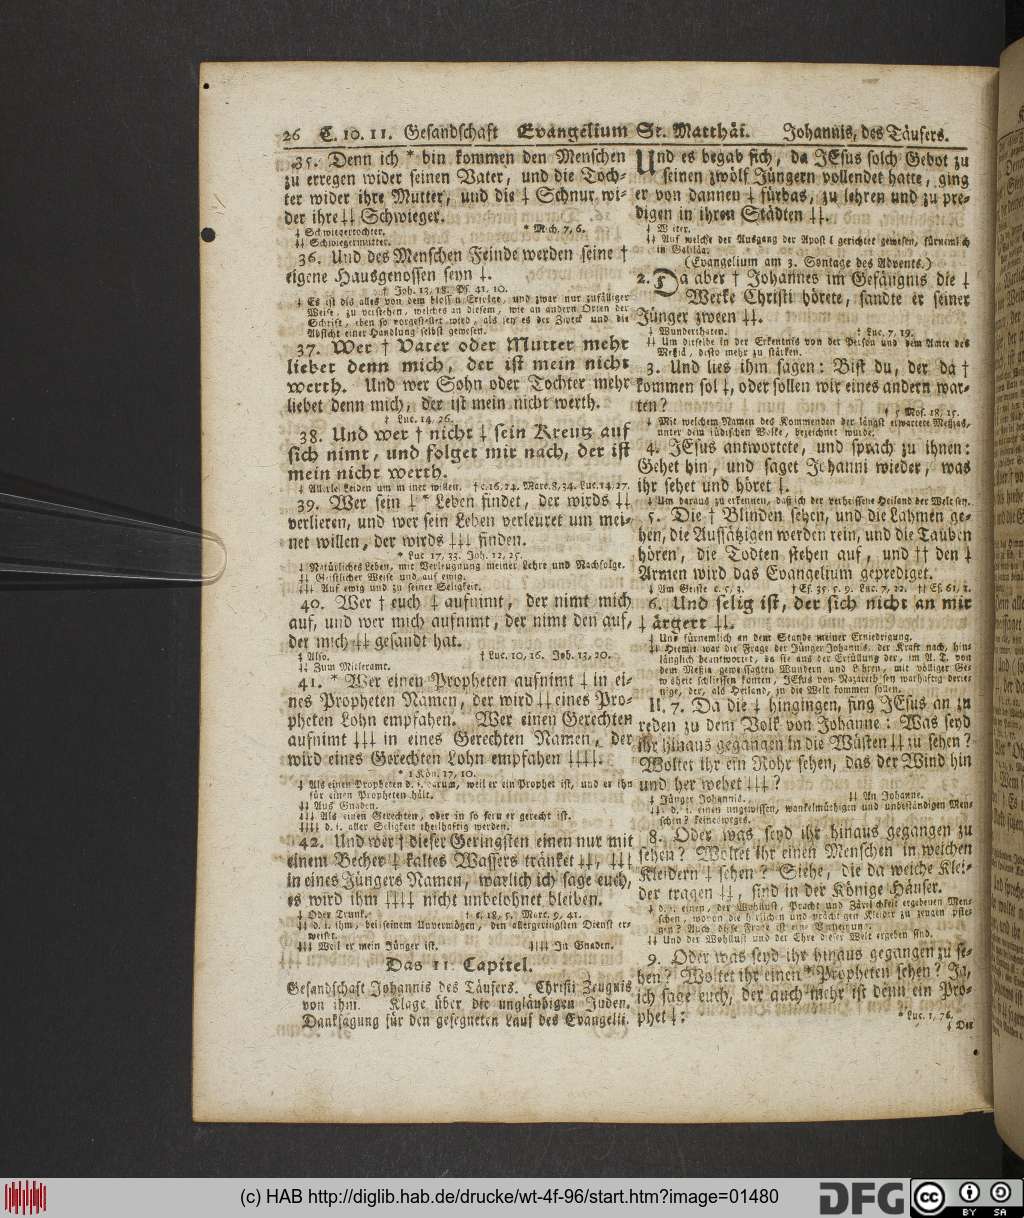 26 C. 10. 11. Gesandschaft Evangelium St. Matthäi. Johannis, des Täufers.
35. Denn ich * bin kommen den Menschen
zu erregen wider seinen Vater, und die Toch-
ter wider ihre Mutter, und die ‡ Schnur wi-
der ihre ‡‡ Schwieger.
‡ Schwiegertochter. * Mich. 7, 6.
‡‡ Schwiegermutter.
36. Und des Menschen Feinde werden seine †
eigene Hausgenossen seyn ‡.
† Joh. 13, 18. Ps. 41, 10.
‡ Es ist dis alles von dem blossen Erfolge, und zwar nur zufälliger
Weise, zu verstehen, welches an diesem, wie an andern Orten der
Schrift, eben so vorgestellet wird, als sey es der Zweck und die
Absicht einer Handlung selbst gewesen.
37. Wer † Vater oder Mutter mehr
liebet denn mich, der ist mein nicht
werth. Und wer Sohn oder Tochter mehr
liebet denn mich, der ist mein nicht werth.
† Luc. 14, 26.
38. Und wer † nicht ‡ sein Kreutz auf
sich nimt, und folget mir nach, der ist
mein nicht werth.
‡ Allerlei Leiden um meinet willen. † c. 16, 24. Marc. 8, 34. Luc. 14, 27.
39. Wer sein ‡ * Leben findet, der wirds ‡‡
verlieren, und wer sein Leben verleuret um mei-
net willen, der wirds ‡‡‡ finden.
* Luc. 17, 33. Joh. 12, 25.
‡ Natürliches Leben, mit Verleugnung meiner Lehre und Nachfolge.
‡‡ Geistlicher Weise und auf ewig.
‡‡‡ Auf ewig und zu seiner Seligkeit.
40. Wer † euch ‡ aufnimt, der nimt mich
auf, und wer mich aufnimt, der nimt den auf,
der mich ‡‡ gesandt hat.
‡ Also. † Luc. 10, 16. Joh. 13, 20.
‡‡ Zum Mitleramt.
41. * Wer einen Propheten aufnimt ‡ in ei-
nes Propheten Namen, der wird ‡‡ eines Pro-
pheten Lohn empfahen. Wer einen Gerechten
aufnimt ‡‡‡ in eines Gerechten Namen, der
wird eines Gerechten Lohn empfahen ‡‡‡‡.
* 1 Kön. 17, 10.
‡ Als einen Propheten d. i. darum, weil er ein Prophet ist, und er ihn
für einen Propheten hält.
‡‡ Aus Gnaden.
‡‡‡ Als einen Gerechten, oder in so fern er gerecht ist.
‡‡‡‡ d. i. aller Seligkeit theilhaftig werden.
42. Und wer † dieser Geringsten einen nur mit
einem Becher ‡ kaltes Wassers tränket ‡‡, ‡‡‡
in eines Jüngers Namen, warlich ich sage euch,
es wird ihm ‡‡‡‡ nicht unbelohnet bleiben.
‡ Oder Trunk. † c. 18, 5. Marc. 9, 41.
‡‡ d. i. ihm, bei seinem Unvermögen, den allergeringsten Dienst er-
weiset.
‡‡‡ Weil er mein Jünger ist. ‡‡‡‡ In Gnaden.
Das 11. Capitel.
Gesandschaft Johannis des Täufers. Christi Zeugnis
von ihm. Klage über die ungläubigen Juden.
Danksagung für den gesegneten Lauf des Evangelii.
Und es begab sich, da JEsus solch Gebot zu
seinen zwölf Jüngern vollendet hatte, ging
er von dannen ‡ fürbas, zu lehren und zu pre-
digen in ihren Städten ‡‡.
‡ Weiter.
‡‡ Auf welche der Ausgang der Apostel gerichtet gewesen, fürnemlich
in Galiläa.
(Evangelium am 3. Sontage des Advents.)
2. Da aber † Johannes im Gefängnis die ‡
Werke Christi hörete, sandte er seiner
Jünger zween ‡‡.
‡ Wunderthaten. † Luc. 7, 19.
‡‡ Um dieselbe in der Erkentnis von der Person und dem Amte des
Meßiä, desto mehr zu stärken.
3. Und lies ihm sagen: Bist du, der da †
kommen sol ‡, oder sollen wir eines andern war-
ten?
† 5 Mos. 18, 15.
‡ Mit welchem Namen des Kommenden der längst erwartete Meßias,
unter dem jüdischen Volke, bezeichnet wurde.
4. JEsus antwortete, und sprach zu ihnen:
Gehet hin, und saget Johanni wieder, was
ihr sehet und höret ‡.
‡ Um daraus zu erkennen, daß ich der verheissene Heiland der Welt sey.
5. Die † Blinden sehen, und die Lahmen ge-
hen, die Aussätzigen werden rein, und die Tauben
hören, die Todten stehen auf, und †† den ‡
Armen wird das Evangelium geprediget.
‡ Am Geiste c. 5, 3. † Es. 35, 5. 9. Luc. 7, 22. †† Es. 61, 1.
6. Und selig ist, der sich nicht an mir
‡ ärgert ‡‡.
‡ Und fürnemlich an dem Stande meiner Erniedrigung.
‡‡ Hiemit war die Frage der Jünger Johannis, der Kraft nach, hin-
länglich beantwortet, da sie aus der Erfüllung der, im A. T. von
dem Meßia geweissagten Wundern und Lehren, mit völliger Ge-
wisheit schliessen konten, JEsus von Nazareth sey warhaftig derje-
nige, der, als Heiland, in die Welt kommen sollen.
II. 7. Da die ‡ hingingen, fing JEsus an zu
reden zu dem Volk von Johanne: Was seyd
ihr hinaus gegangen in die Wüsten ‡‡ zu sehen?
Woltet ihr ein Rohr sehen, das der Wind hin
und her wehet ‡‡‡?
‡ Jünger Johannis. ‡‡ An Johanne.
‡‡‡ d. i. einen ungewissen, wankelmüthigen und unbeständigen Men-
schen? keinesweges.
8. Oder was seyd ihr hinaus gegangen zu
sehen? Woltet ihr einen Menschen in weichen
Kleidern ‡ sehen? Siehe, die da weiche Klei-
der tragen ‡‡, sind in der Könige Häuser.
‡ d. i. einen, der Wohllust, Pracht und Zärtlichkeit ergebenen Men-
schen, wovon die herrlichen und prächtigen Kleider zu zeugen pfle-
gen? Auch diese Frage ist eine Verneinung.
‡‡ Und der Wohllust und der Ehre dieser Welt ergeben sind.
9. Oder was seyd ihr hinaus gegangen zu se-
hen? Woltet ihr einen * Propheten sehen? Ja,
ich sage euch, der auch mehr ist denn ein Pro-
phet ‡:
* Luc. 1, 76.
‡ Der
(c) HAB http://diglib.hab.de/drucke/wt-4f-96/start.htm?image=01480
DFG
CC BY SA